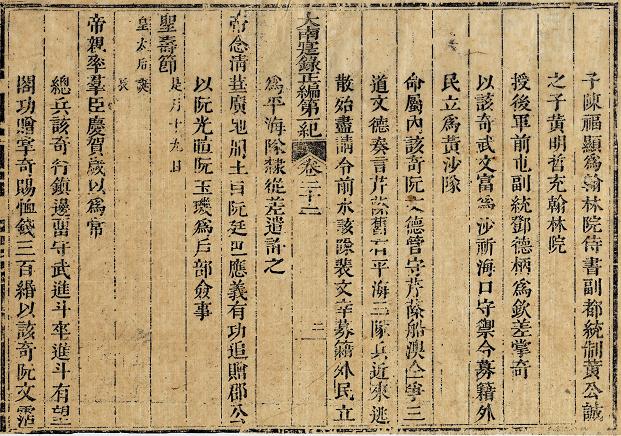 子陳福顯爲翰林院侍書副都統制黃公誠
之子黃明哲充翰林院
授後軍前屯副統鄧德柄爲欽差掌奇
以該奇武文富爲沙祈海口守禦令募籍外
民立爲黃沙隊
命屬內該奇阮文德管守芹蒢船澳仝爭三
道文德奏言芹蒢舊有平海三隊兵近來逃
散殆盡請令前水該隊裴文辛募籍外民立
大南寔錄正編第一紀 卷二十二 二
爲平海隊隸從差遣許之
帝念清華廣地開土曰阮廷巴應義有功追贈郡公
以阮光暄阮玉璣爲后部僉事
聖壽節 是月十九日
皇太后誕
辰
帝親率羣臣慶賀歲以爲常
總兵該奇行鎮邊留守武進斗卒進斗有望
閣功贈掌奇賜恤錢三百緡以該奇阮文霑